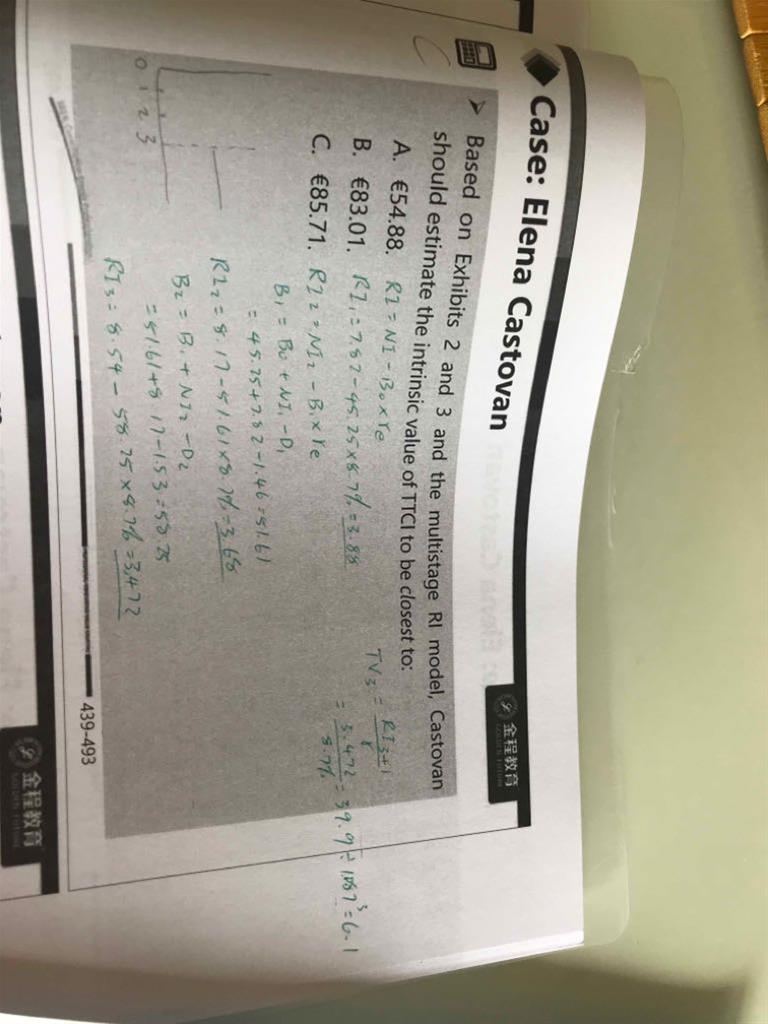 Case: Elena Castovan
金程教育
GOLDEN FUTURE
➢ Based on Exhibits 2 and 3 and the multistage RI model, Castovan
should estimate the intrinsic value of TTCI to be closest to:
C
A. €54.88.
B. €83.01.
C. €85.71.
RI = NI - B0 × re
RI1 = 7.82 - 45.25 × 8.7% = 3.88
RI2 = NI2 - B1 × re
B1 = B0 + NI1 - D1
= 45.25 + 7.82 - 1.46 = 51.61
RI2 = 8.17 - 51.61 × 8.7% = 3.68
B2 = B1 + NI2 - D2
= 51.61 + 8.17 - 1.53 = 58.25
RI3 = 8.54 - 58.25 × 8.7% = 3.472
TV3 = RI3+1 / r
= 3.472 / 8.7% = 39.9 ÷ 1.087³ =
0 1 2 3
439-493
金程教育
GOLDEN FUTURE